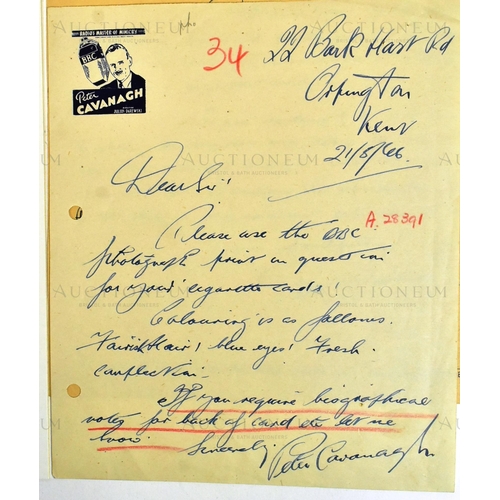 RADIO'S MASTER OF MIMICRY
BBC
Peter
CAVANAGH
34
22 Bark Hart Rd
Orpington
Kent
21/5/46.
Dear Sir!
A. 28391
Please use the BBC
photograph print in question
for your cigarette cards!
Colouring is as follows.
Fairish Hair! blue eyes! Fresh
complection.
If you require biographical
notes for back of card etc let me
know.
Sincerely,
Peter Cavanagh
AUCTIONEUM